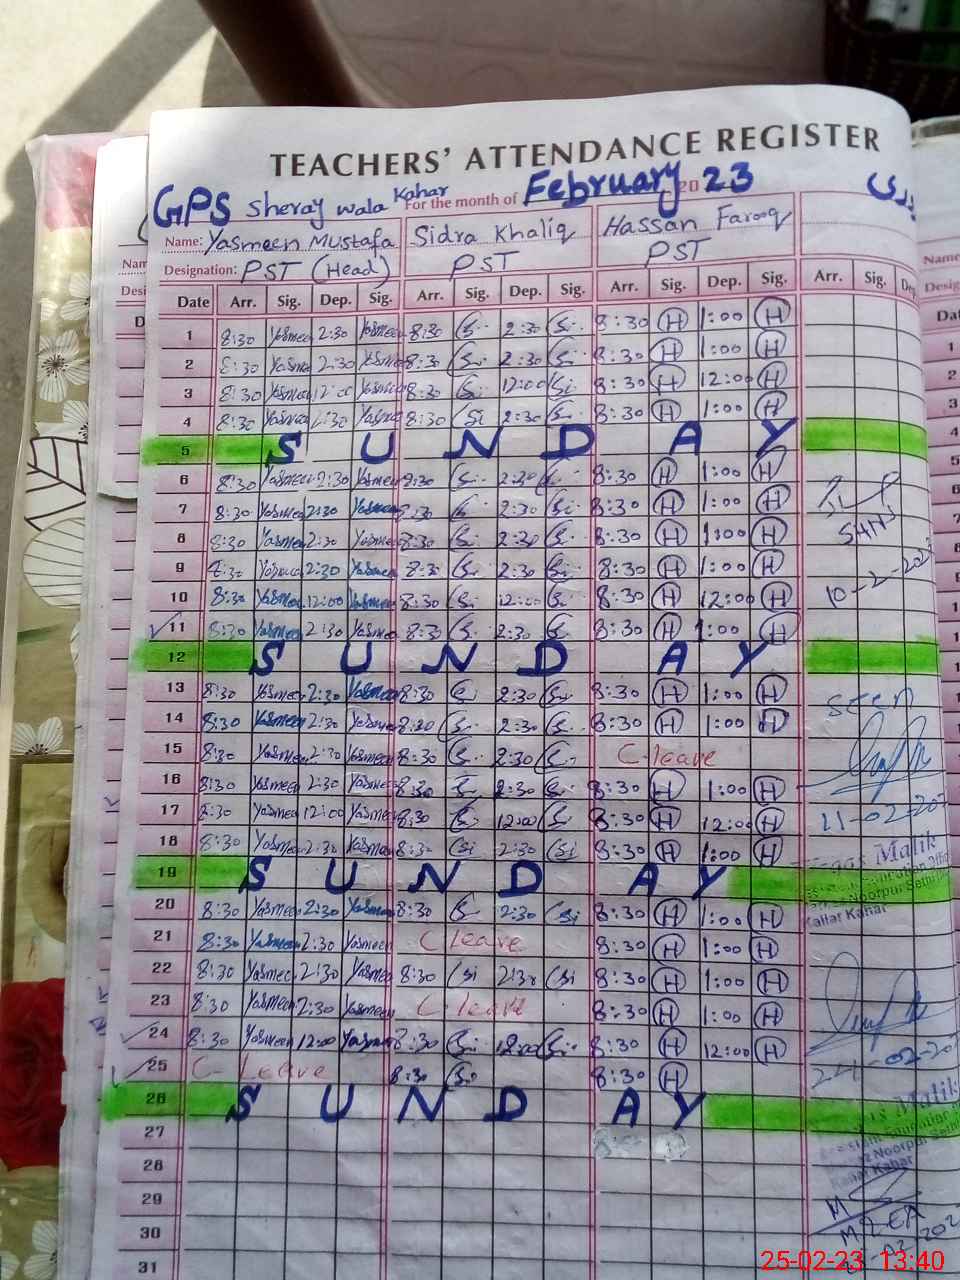 TEACHERS' ATTENDANCE REGISTER
GPS Sheray wala Kahar For the month of February 20 23
Name: Yasmeen Mustafa Sidra Khaliq Hassan Farooq
Designation: PST (Head) PST PST
Date Arr. Sig. Dep. Sig. Arr. Sig. Dep. Sig. Arr. Sig. Dep. Sig. Arr. Sig. Dep.
1 8:30 Yasmeen 2:30 Yasmeen 8:30 Si 2:30 Si 8:30 H 1:00 H
2 8:30 Yasmeen 2:30 Yasmeen 8:30 Si 2:30 Si 8:30 H 1:00 H
3 8:30 Yasmeen 12:00 Yasmeen 8:30 Si 12:00 Si 8:30 H 12:00 H
4 8:30 Yasmeen 2:30 Yasmeen 8:30 Si 2:30 Si 8:30 H 1:00 H
5 SUNDAY
6 8:30 Yasmeen 2:30 Yasmeen 8:30 Si 2:30 Si 8:30 H 1:00 H
7 8:30 Yasmeen 2:30 Yasmeen 8:30 Si 2:30 Si 8:30 H 1:00 H
8 8:30 Yasmeen 2:30 Yasmeen 8:30 Si 2:30 Si 8:30 H 1:00 H
9 8:30 Yasmeen 2:30 Yasmeen 8:30 Si 2:30 Si 8:30 H 1:00 H
10 8:30 Yasmeen 12:00 Yasmeen 8:30 Si 12:00 Si 8:30 H 12:00 H 10-2-202
11 8:30 Yasmeen 2:30 Yasmeen 8:30 Si 2:30 Si 8:30 H 1:00 H
12 SUNDAY
13 8:30 Yasmeen 2:30 Yasmeen 8:30 Si 2:30 Si 8:30 H 1:00 H seen
14 8:30 Yasmeen 2:30 Yasmeen 8:30 Si 2:30 Si 8:30 H 1:00 H
15 8:30 Yasmeen 2:30 Yasmeen 8:30 Si 2:30 Si C-leave
16 8:30 Yasmeen 2:30 Yasmeen 8:30 Si 2:30 Si 8:30 H 1:00 H
17 8:30 Yasmeen 12:00 Yasmeen 8:30 Si 12:00 Si 8:30 H 12:00 H 11-02-202
18 8:30 Yasmeen 2:30 Yasmeen 8:30 Si 2:30 Si 8:30 H 1:00 H
Malik
19 SUNDAY
Noorpur Sethi
Kallar Kahar
20 8:30 Yasmeen 2:30 Yasmeen 8:30 Si 2:30 Si 8:30 H 1:00 H
21 8:30 Yasmeen 2:30 Yasmeen C leave 8:30 H 1:00 H
22 8:30 Yasmeen 2:30 Yasmeen 8:30 Si 2:30 Si 8:30 H 1:00 H
23 8:30 Yasmeen 2:30 Yasmeen C-leave 8:30 H 1:00 H
24 8:30 Yasmeen 12:00 Yasmeen 8:30 Si 12:00 Si 8:30 H 12:00 H
25 C- Leave 8:30 Si 8:30 H 24-02-202
26 SUNDAY
Malik
27
Noorpur Sethi
Kallar Kahar
28
29
30
31
25-02-23 13:40